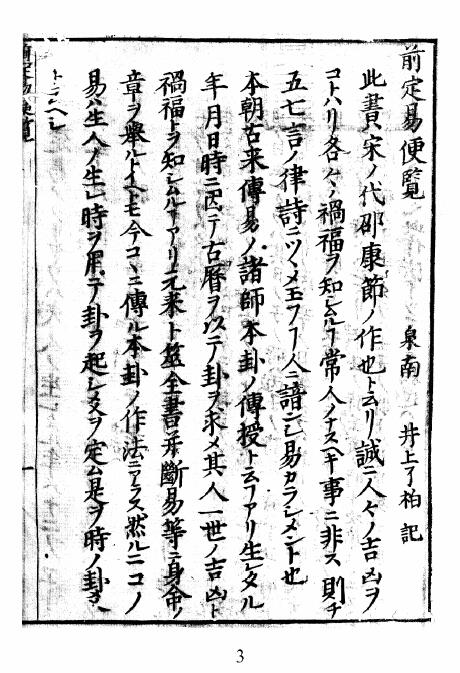 前定易便覧　泉南　井上了柏記
此書ハ宋ノ代邵康節ノ作也ト云リ誠ニ人々ノ吉凶ヲ
コトハリ各々ノ禍福ヲ知シムルヿ常人ノナスヘキ事ニ非ス則チ
五七言ノ律詩ニツヽメ玉フヿ人ニ諳シ易カラシメント也
本朝古来傳易ノ諸師本卦ノ傳授ト云フアリ生レタル
年月日時ニ因テ古暦ヲ以テ卦ヲ求メ其人一世ノ吉凶ト
禍福トヲ知シムルヿアリ元来ト筮全書并断易等ニ身命ノ
章ヲ舉ルトイヘモ今コヽニ傳ル本卦ノ作法ニアラス然ルニコノ
易ハ生人ノ生レ時ヲ用テ卦ヲ起シ爻ヲ定ム是ヲ時ノ卦
前定易便覧
一
3